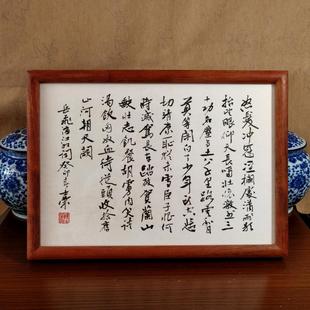 怒髮冲冠凭欄處潇雨歇
抬望眼仰天長嘯壮懷激烈三
十功名塵与土八千里路雲和月
莫等閑白了少年頭空悲
切靖康耻猶未雪臣子恨何
時滅駕長車踏破賀蘭山
缺壮志飢餐胡虜肉笑談
渴飲匈奴血待從頭收拾舊
山河朝天闕
岳飛满江红詞癸卯年